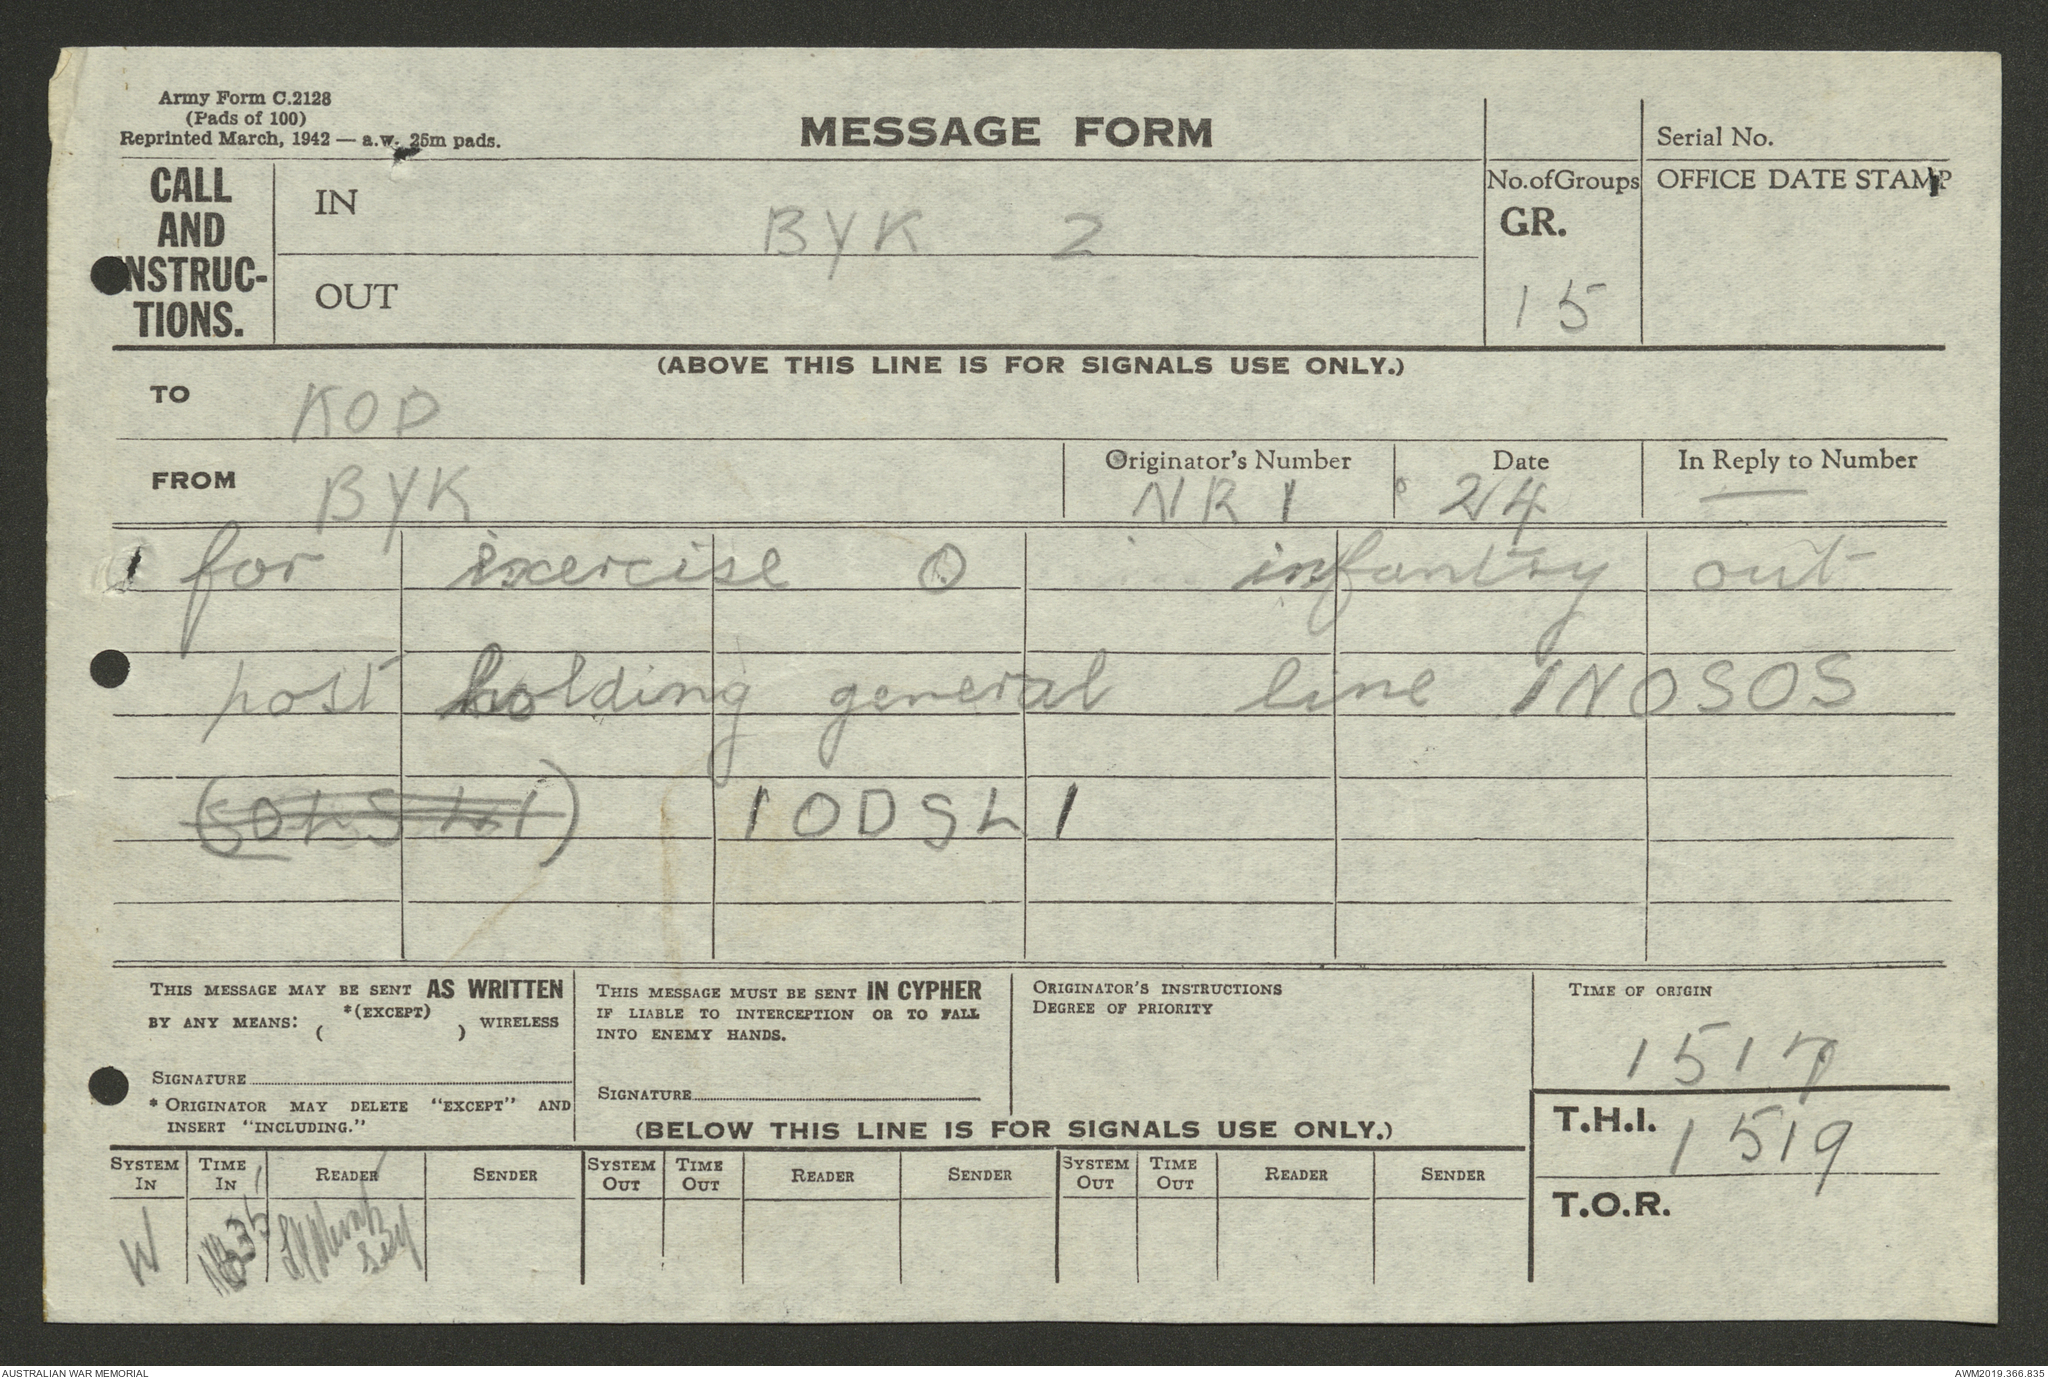 Army Form C.2128
(Pads of 100)
Reprinted March, 1942 — a.w. 25m pads.
MESSAGE FORM
Serial No.
CALL AND INSTRUC-TIONS.
IN
BYK 2
OUT
No. of Groups
GR.
15
OFFICE DATE STAMP
(ABOVE THIS LINE IS FOR SIGNALS USE ONLY.)
TO KOD
FROM BYK
Originator's Number
NR 1
Date
24
In Reply to Number
—
for exercise O infantry out
post holding general line INOSOS
1ODSL1
THIS MESSAGE MAY BE SENT AS WRITTEN
BY ANY MEANS: *(EXCEPT) ( ) WIRELESS
SIGNATURE
* ORIGINATOR MAY DELETE "EXCEPT" AND
INSERT "INCLUDING."
THIS MESSAGE MUST BE SENT IN CYPHER
IF LIABLE TO INTERCEPTION OR TO FALL
INTO ENEMY HANDS.
SIGNATURE
ORIGINATOR'S INSTRUCTIONS
DEGREE OF PRIORITY
TIME OF ORIGIN
1517
(BELOW THIS LINE IS FOR SIGNALS USE ONLY.)
T.H.I. 1519
T.O.R.
SYSTEM IN TIME IN READER SENDER SYSTEM OUT TIME OUT READER SENDER SYSTEM OUT TIME OUT READER SENDER
W
AUSTRALIAN WAR MEMORIAL
AWM2019.366.835